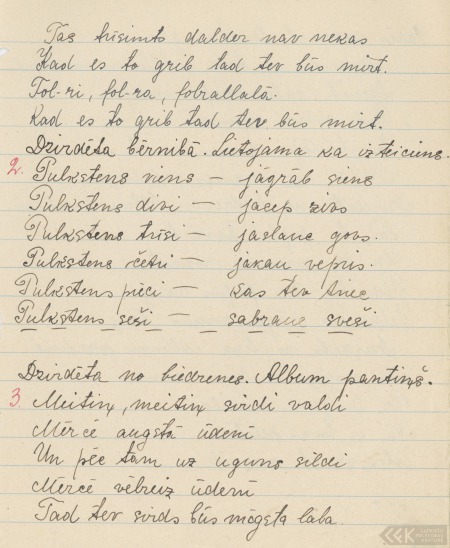 Tas trīsimts dalder nav nekas
Kad es to grib tad tev būs mirt.
Fol-ri, fol-ra, folrallalā.
Kad es to grib tad tev būs mirt.
Dzirdēta bērnibā. Lietojama ka izteiciens.
2. Pulkstens viens – jāgrāb siens
Pulkstens divi – jācep zivs
Pulkstens trīsi – jaslauc govs.
Pulkstens četri – jakau vepris.
Pulkstens pieci – kas tev tiec
Pulkstens seši – sabrauc sveši
Dzirdēta no biedrenes. Album pantiņš.
3 Meitiņ, meitiņ sirdi valdi
Mērcē augstā ūdenī
Un pēc tam uz uguns sildi
Mērcē vēlreiz ūdenī
Tad tev sirds būs mēgsta laba.